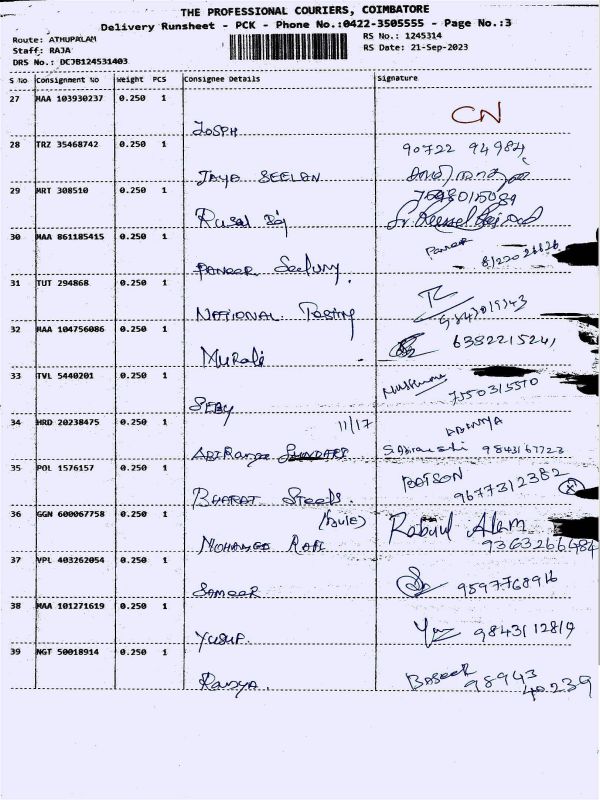 THE PROFESSIONAL COURIERS, COIMBATORE
Delivery Runsheet - PCK - Phone No.:0422-3505555 - Page No.:3
Route: ATHUPALAM
Staff: RAJA
DRS No.: DCJB124531403
RS No.: 1245314
RS Date: 21-Sep-2023
S No Consignment No Weight PCS Consignee Details Signature
27 MAA 103930237 0.250 1
JOSPH CN
28 TRZ 35468742 0.250 1 90722 94984
JAYA SEELAN
29 MRT 308510 0.250 1 7598015089
Rusal Raj
30 MAA 861185415 0.250 1 Paneer
PANEER Selluny.
31 TUT 294868 0.250 1
NATIONAL Testing 9843019343
32 MAA 104756086 0.250 1 6382215241
Murali
33 TVL 5440201 0.250 1 7550315570
SEBY
34 HRD 20238475 0.250 1 11/17
ABIRamya 9843167723
35 POL 1576157 0.250 1 9677312382
BHARAT Steels.
36 GGN 600067758 0.250 1 Rabiul Alam
MOHAMED RAFI 9363266484
37 VPL 403262054 0.250 1
SAMEER 9597768916
38 MAA 101271619 0.250 1
YUSUF. 9843112819
39 NGT 50018914 0.250 1
Ramya. BASEER 98943
40239